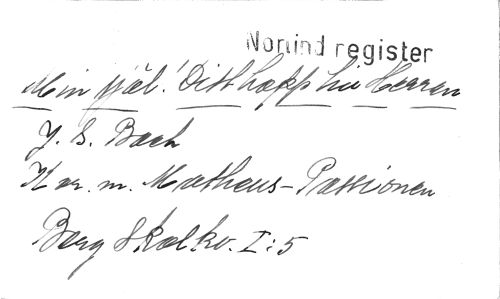 Nomind register
Min själ! Ditt hopp hin Herren
J. S. Bach
Kor. m. Matheus-Passionen
Berg Skolkv. I:5